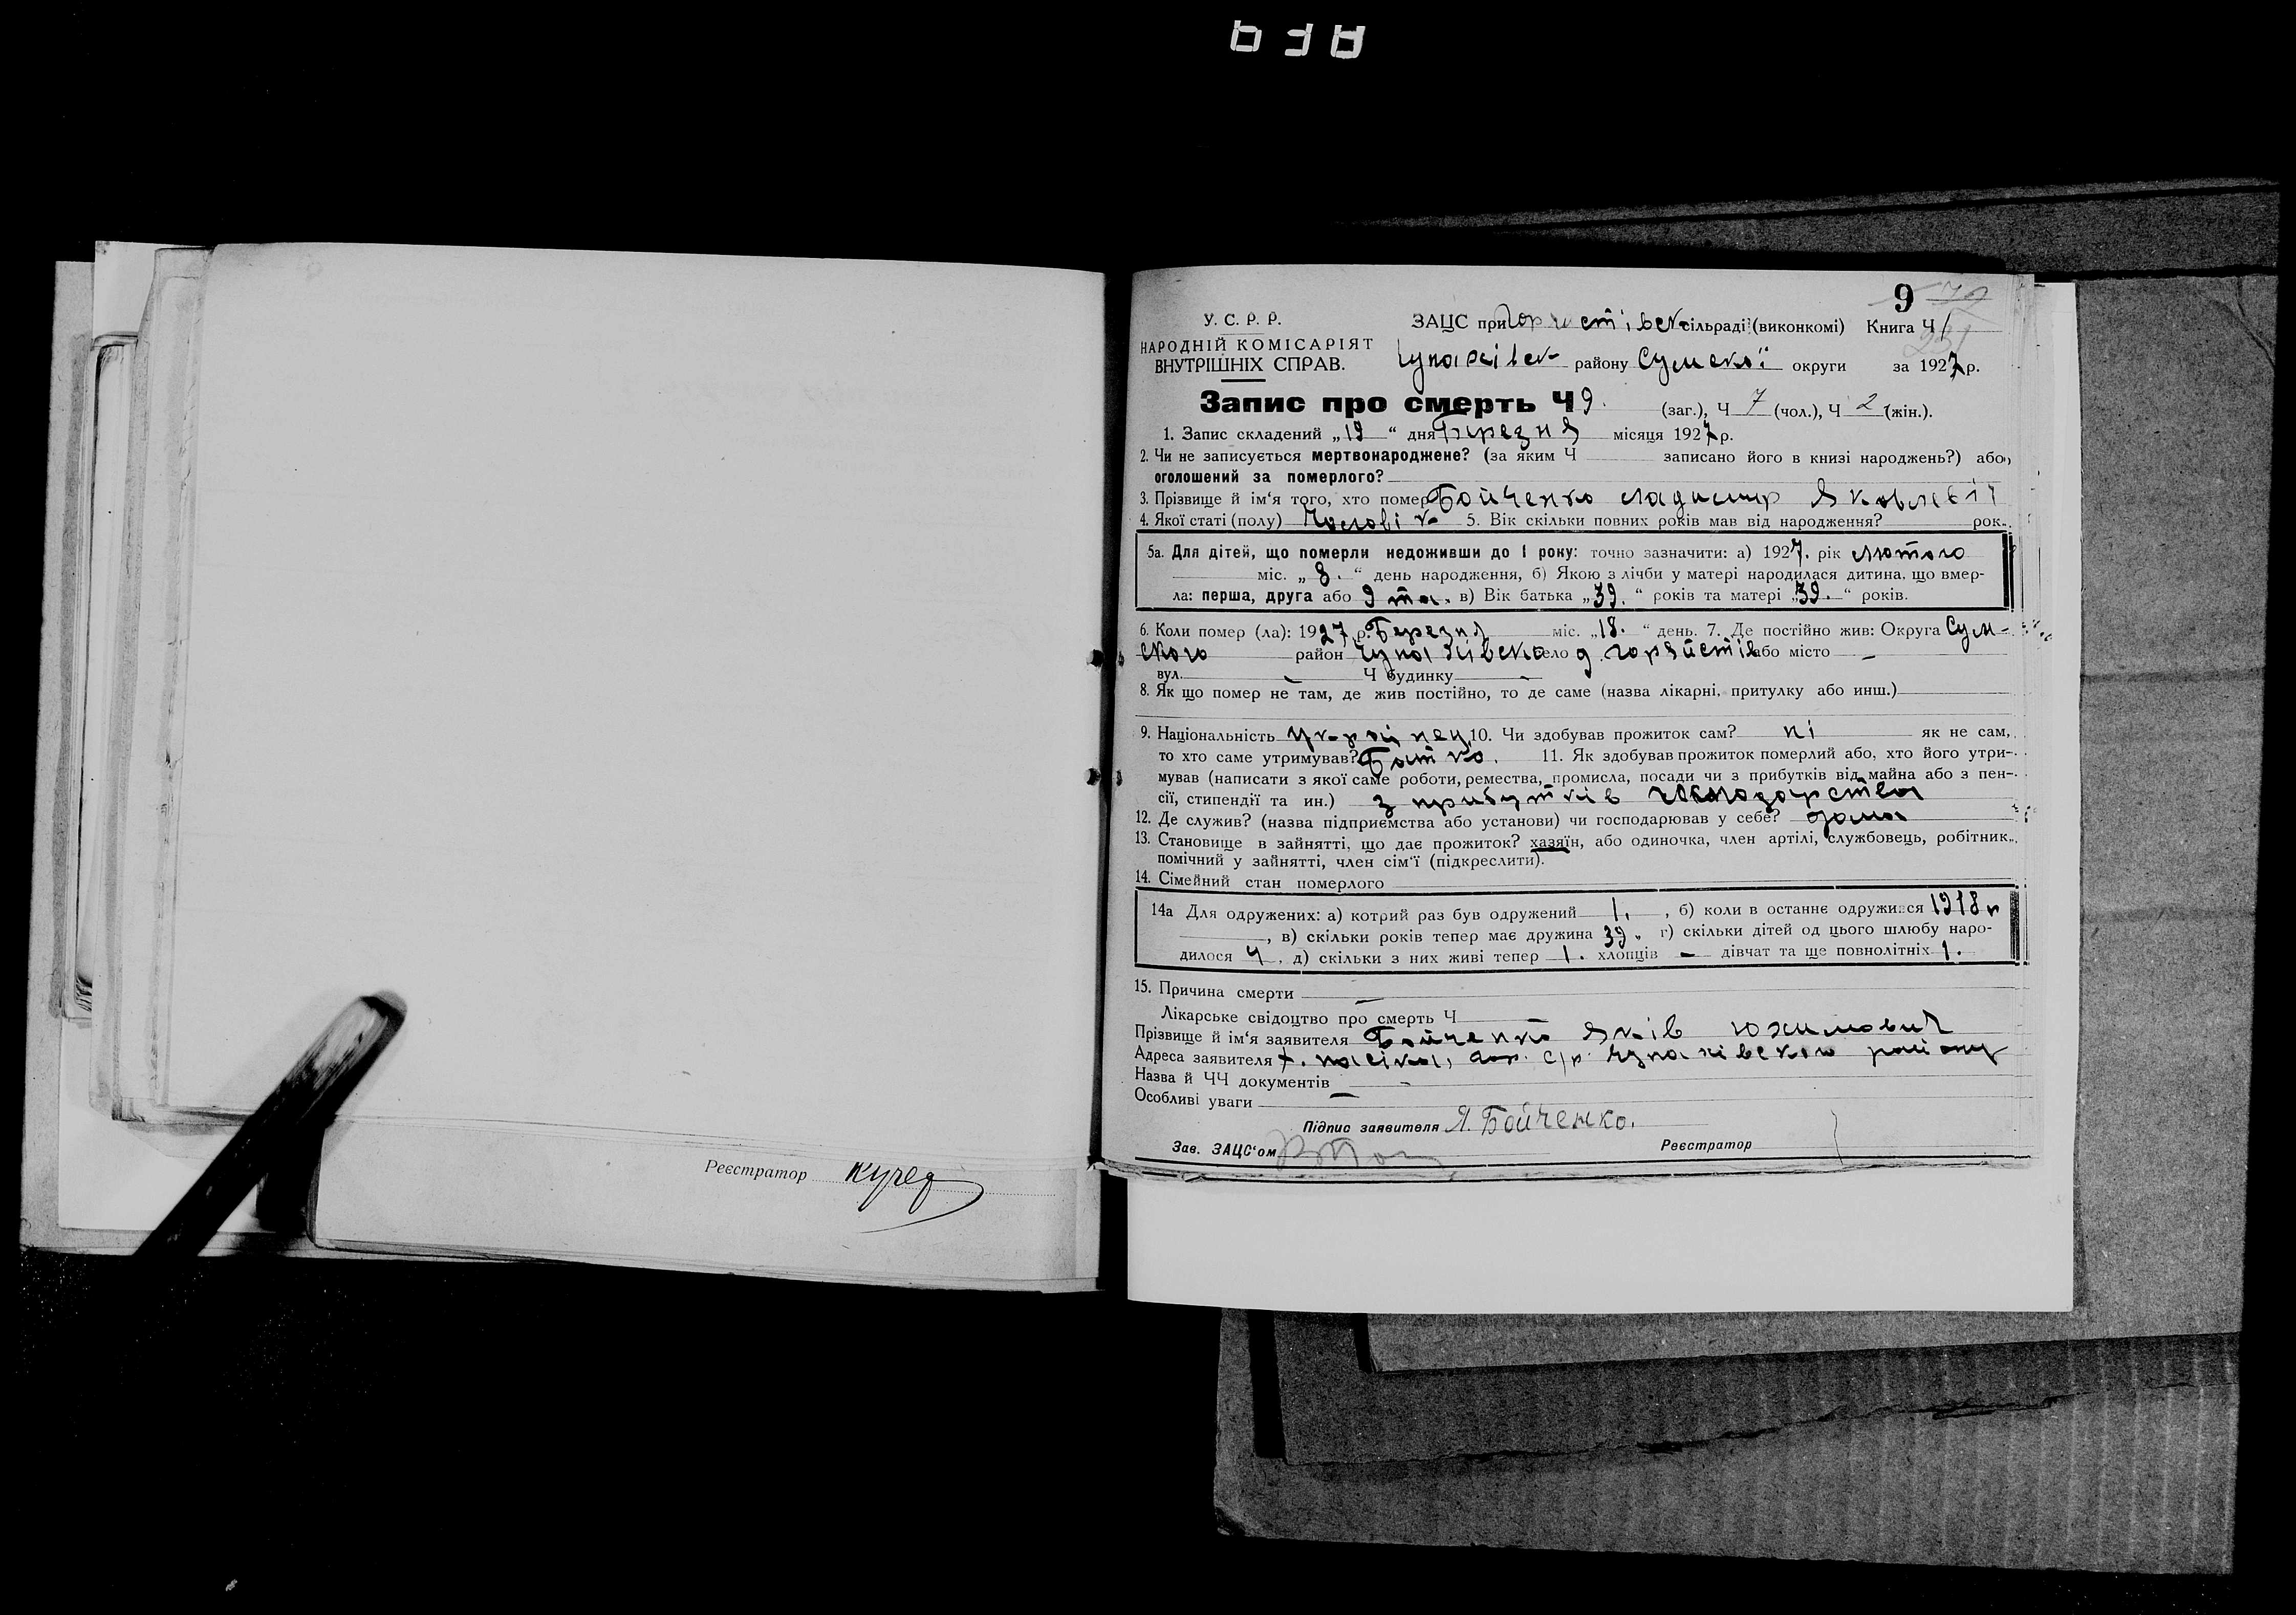 Реєстратор Кучер
9 72
У. С. Р. Р. ЗАЦС при сільраді (виконкомі) Книга Ч 1
231
НАРОДНІЙ КОМІСАРІЯТ
ВНУТРІШНІХ СПРАВ. Чупахівск району Сумскої округи за 1927 р.
Запис про смерть Ч 9. (заг.), Ч 7 (чол.), Ч 2 (жін.).
1. Запис складений „19“ дня Березня місяця 1927 р.
2. Чи не записується мертвонароджене? (за яким Ч записано його в книзі народжень?) або,
оголошений за померлого?
3. Прізвище й ім‘я того, хто помер Бойченко Яковлевіч
4. Якої статі (полу) Чоловік 5. Вік скільки повних років мав від народження? рок.
5а. Для дітей, що померли недоживши до 1 року: точно зазначити: а) 1927. рік лютого
міс. „8.“ день народження, б) Якою з лічби у матері народилася дитина, що вмер-
ла: перша, друга або 9 та. в) Вік батька „39.“ років та матері „39.“ років.
6. Коли помер (ла): 1927 р. Березня міс. „18.“ день. 7. Де постійно жив: Округа Сум-
ского район Чупахівско село або місто —
вул. — Ч будинку —
8. Як що помер не там, де жив постійно, то де саме (назва лікарні, притулку або инш.)
9. Національність українец 10. Чи здобував прожиток сам? ні як не сам,
то хто саме утримував? Батко. 11. Як здобував прожиток померлий або, хто його утри-
мував (написати з якої саме роботи, ремества, промисла, посади чи з прибутків від майна або з пен-
сії, стипендії та ин.) з прибутків господарства
12. Де служив? (назва підприємства або установи) чи господарював у себе? дома
13. Становище в зайнятті, що дає прожиток? хазяїн, або одиночка, член артілі, службовець, робітник,
помічний у зайнятті, член сім‘ї (підкреслити).
14. Сімейний стан померлого
14а Для одружених: а) котрий раз був одружений 1. , б) коли в останнє одружився 1918 р
, в) скільки років тепер має дружина 39. г) скільки дітей од цього шлюбу наро-
дилося 4, д) скільки з них живі тепер 1. хлопців — дівчат та ще повнолітніх 1.
15. Причина смерти —
Лікарське свідоцтво про смерть Ч —
Прізвище й ім‘я заявителя Бойченко Яків Юхимович
Адреса заявителя х. пасіка, с/р. Чупахівского району
Назва й ЧЧ документів —
Особливі уваги —
Підпис заявителя Я. Бойченко.
Зав. ЗАЦС‘ом Реєстратор